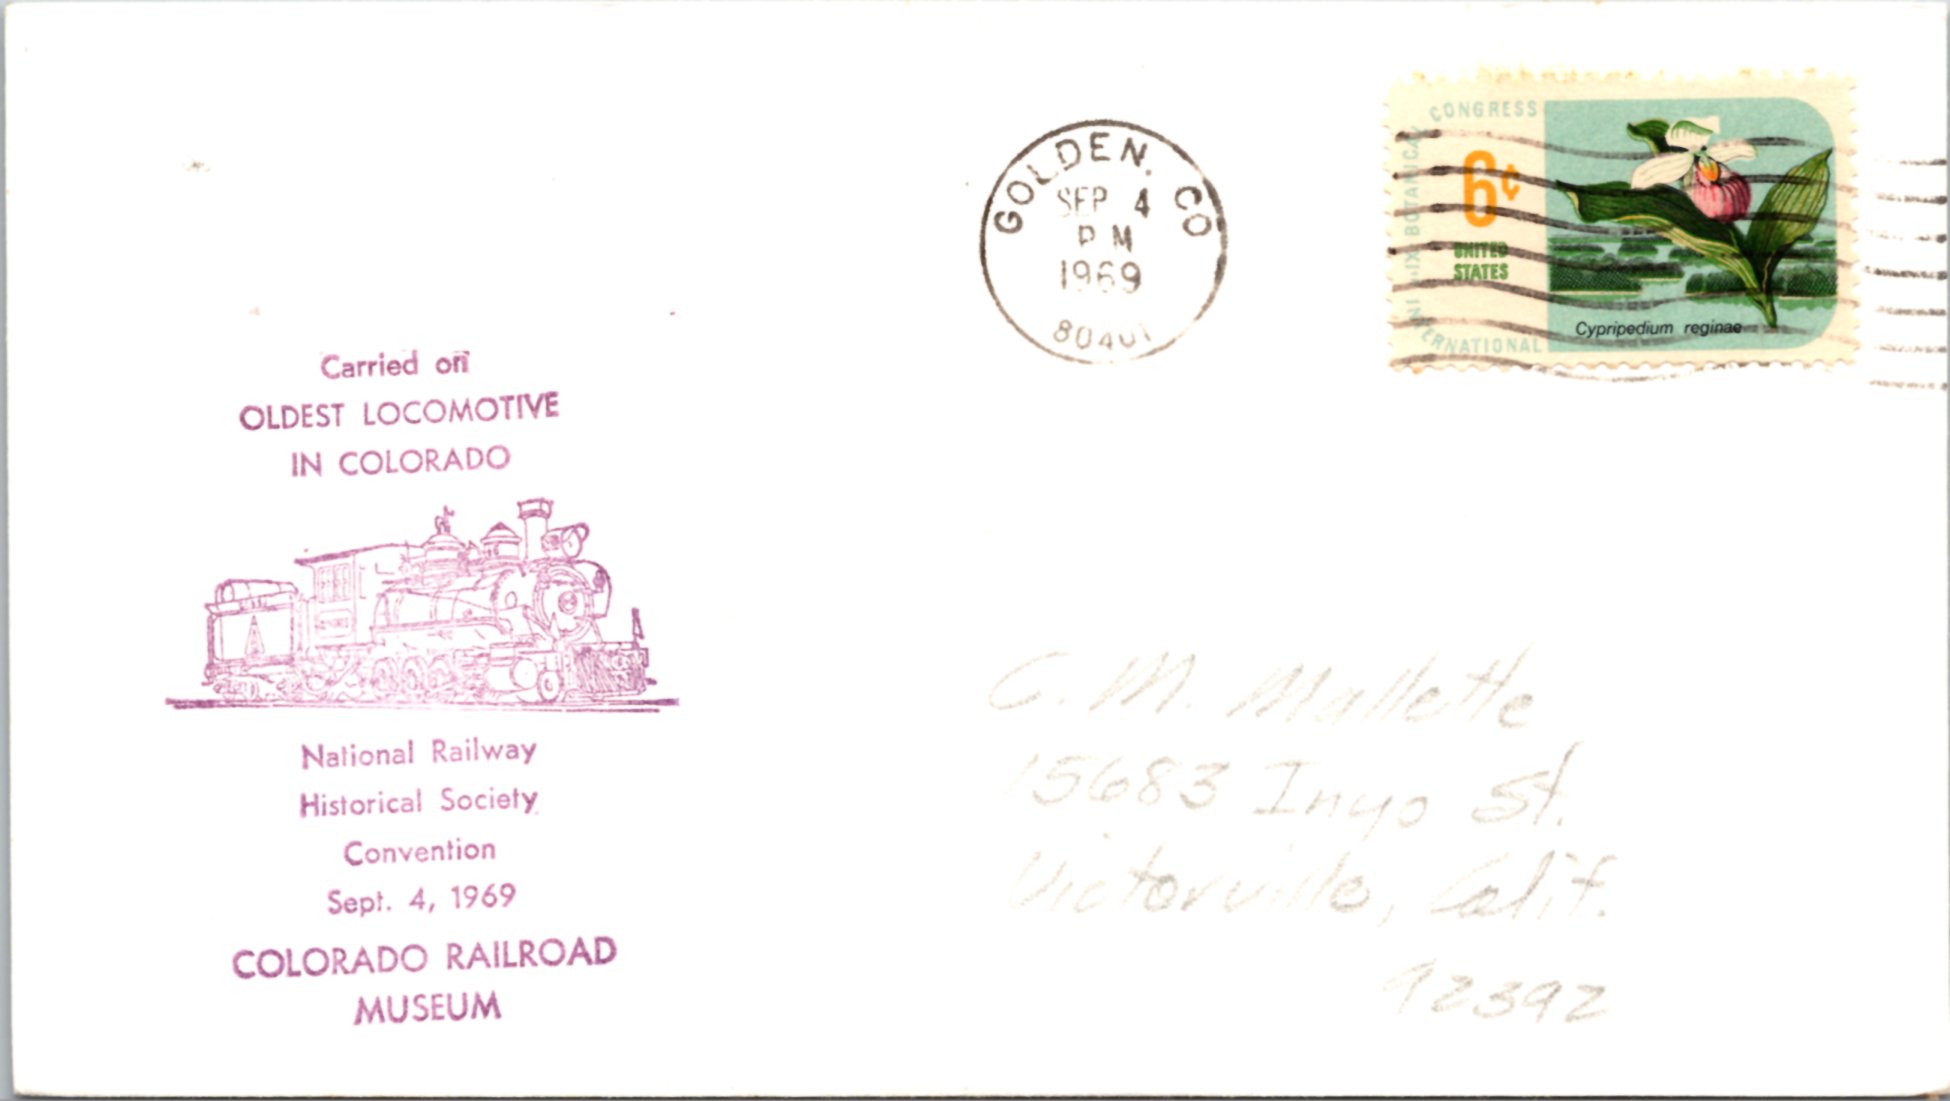 GOLDEN, CO
SEP 4
PM
1969
80401
INTERNATIONAL
XI BOTANICAL
CONGRESS
6¢
UNITED
STATES
Cypripedium reginae
Carried on
OLDEST LOCOMOTIVE
IN COLORADO
National Railway
Historical Society
Convention
Sept. 4, 1969
COLORADO RAILROAD
MUSEUM
C. M. Mallette
15683 Inyo St.
Victorville, Calif.
92392